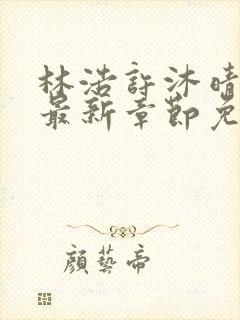 林浩許沐晴
最新章節免
顏藝帝